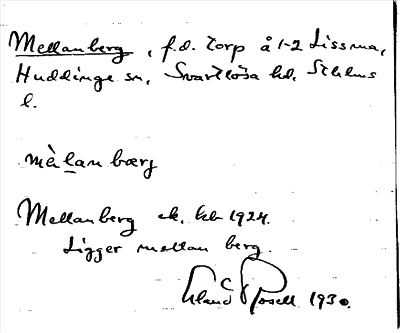 Mellanberg, f.d. torp å 1-2 Lissma,
Huddinge sn, Svartlösa hd, Sthlms
l.
mèlan bærg
Mellanberg ek. kb 1924.
Ligger mellan berg.
Erland Rosell 1930.